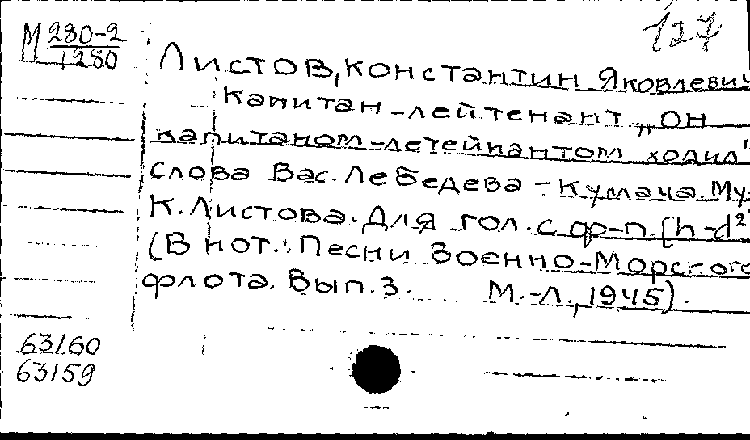 М 280-2
1280
127
Листов, Константин Яковлевич
Капитан-лейтенант „Он
капитаном-летейнантом ходил"
слова Вас. Лебедева-Кумача. Муз.
К. Листова. Для гол. с ф-п. [h-d²]
(В нот.: Песни Военно-Морского
флота. Вып. 3. М.-Л., 1945).
63160
63159